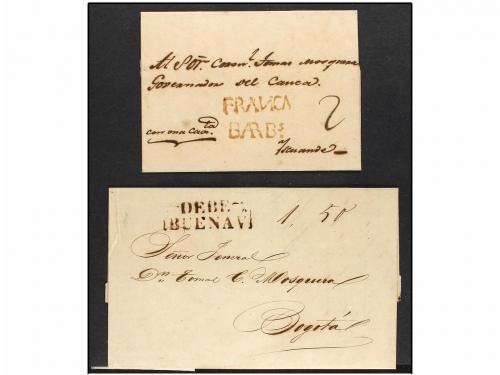 Al Sõr. Coron.l Tomas Mosquera
Governador del Cauca.
FRANCA
BARBs
2
con una
DEBE
BUENAV
1, 50
Señor Jeneral
Dn. Tomas C. Mosquera
Bogotá